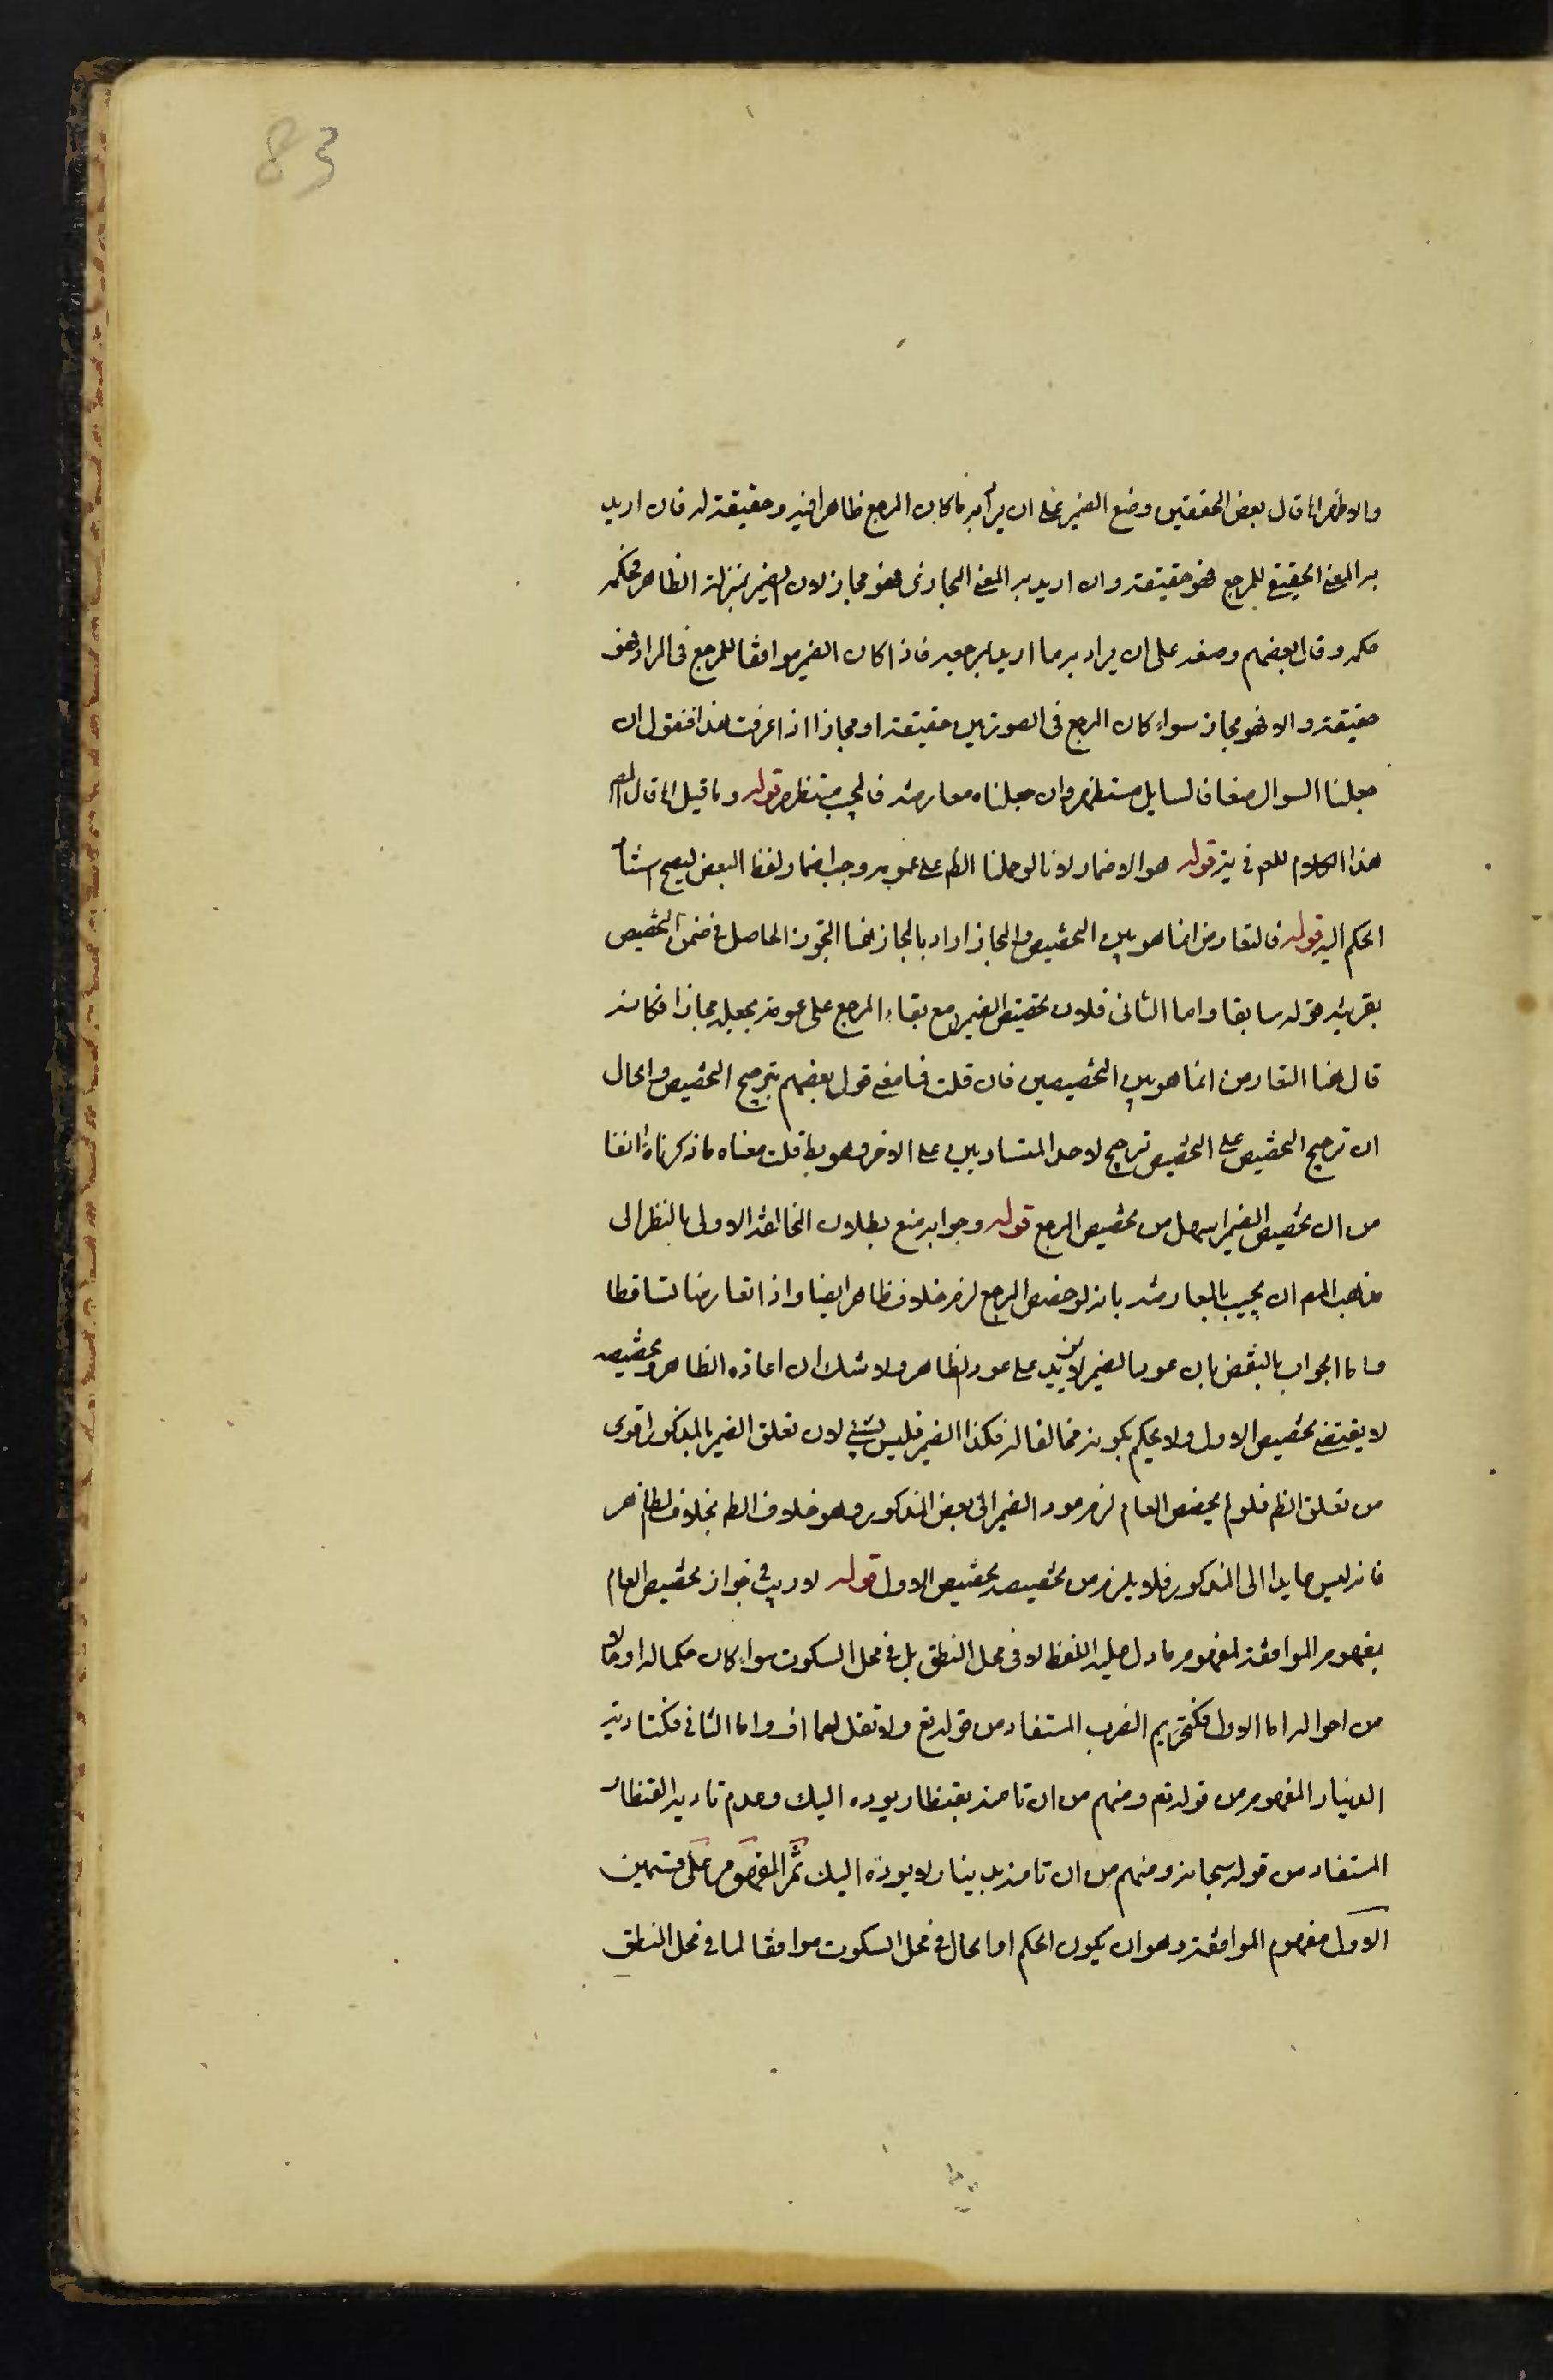 83
والاظهر ما قال بعض المحققين وضع الضمير على ان يراد به ما كان المرجع ظاهرا فيه وحقيقة له فان اريد
به المعنى الحقيقي للمرجع فهو حقيقة وان اريد به المعنى المجازي فهو مجاز لان الضمير بمنزلة الظاهر فحكمه
حكمه وقال بعضهم وضعه على ان يراد به ما اريد بمرجعه فاذا كان الضمير موافقا للمرجع في المراد فهو
حقيقة والا فهو مجاز سواء كان المرجع في الصورتين حقيقة او مجازا اذا عرفت هذا فنقول ان
جعلنا السوال منعا فالسايل مستظهر وان جعلناه معارضة فالمجيب مستظهر قوله وما قيل
هذا الكلام قوله هو الاضمار لانا لو حملنا الظم على عمومه وجب اضمار لفظ البعض ليصح
الحكم اليه قوله فالتعارض انما هو بين التخصيص والمجاز اراد بالمجاز هنا التجوز الحاصل في ضمن التخصيص
بقرينة قوله سابقا واما الثاني فلان تخصيص الضمير مع بقاء المرجع على عمومه يجعله مجازا فكانه
قال هنا التعارض انما هو بين التخصيصين فان قلت فما معنى قول بعضهم بترجيح التخصيص والحال
ان ترجيح التخصيص على التخصيص ترجيح لاحد المتساويين على الاخر وهو بط قلت معناه ما ذكرناه انفا
من ان تخصيص الضمير اسهل من تخصيص المرجع قوله وجوابه منع بطلان المخالفة الاولى بالنظر الى
مذهب المص ان يجيب بالمعارضة بانه لو خصص المرجع لزم خلاف ظاهر ايضا واذا تعارضا تساقطا
واما الجواب بالنقض بان عود الضمير لا يزيد على عود الظاهر ولا شك ان اعادة الظاهر وتخصيصه
لا يقتضي تخصيص الاول ولا يحكم بكونه مخالفا له فكذا الضمير فليس بشيء لان تعلق الضمير بالمذكور اقوى
من تعلق الظم فلو لم يخصص العام لزم عود الضمير الى بعض المذكور وهو خلاف الظم بخلاف الظاهر
فانه ليس عايدا الى المذكور فلا يلزم من تخصيصه تخصيص الاول قوله لا ريب في جواز تخصيص العام
بمفهوم الموافقة المفهوم ما دل عليه اللفظ لا في محل النطق بل في محل السكوت سواء كان حكما له او حالا
من احواله اما الاول فكتحريم الضرب المستفاد من قوله تع ولا تقل لهما اف واما الثاني فكتادية
الدينار المفهوم من قوله تعم ومنهم من ان تامنه بقنطار يوده اليك وعدم تادية القنطار
المستفاد من قوله سبحانه ومنهم من ان تامنه بدينار لا يوده اليك ثم المفهوم على قسمين
الاول مفهوم الموافقة وهو ان يكون الحكم او الحال في محل السكوت موافقا لما في محل النطق